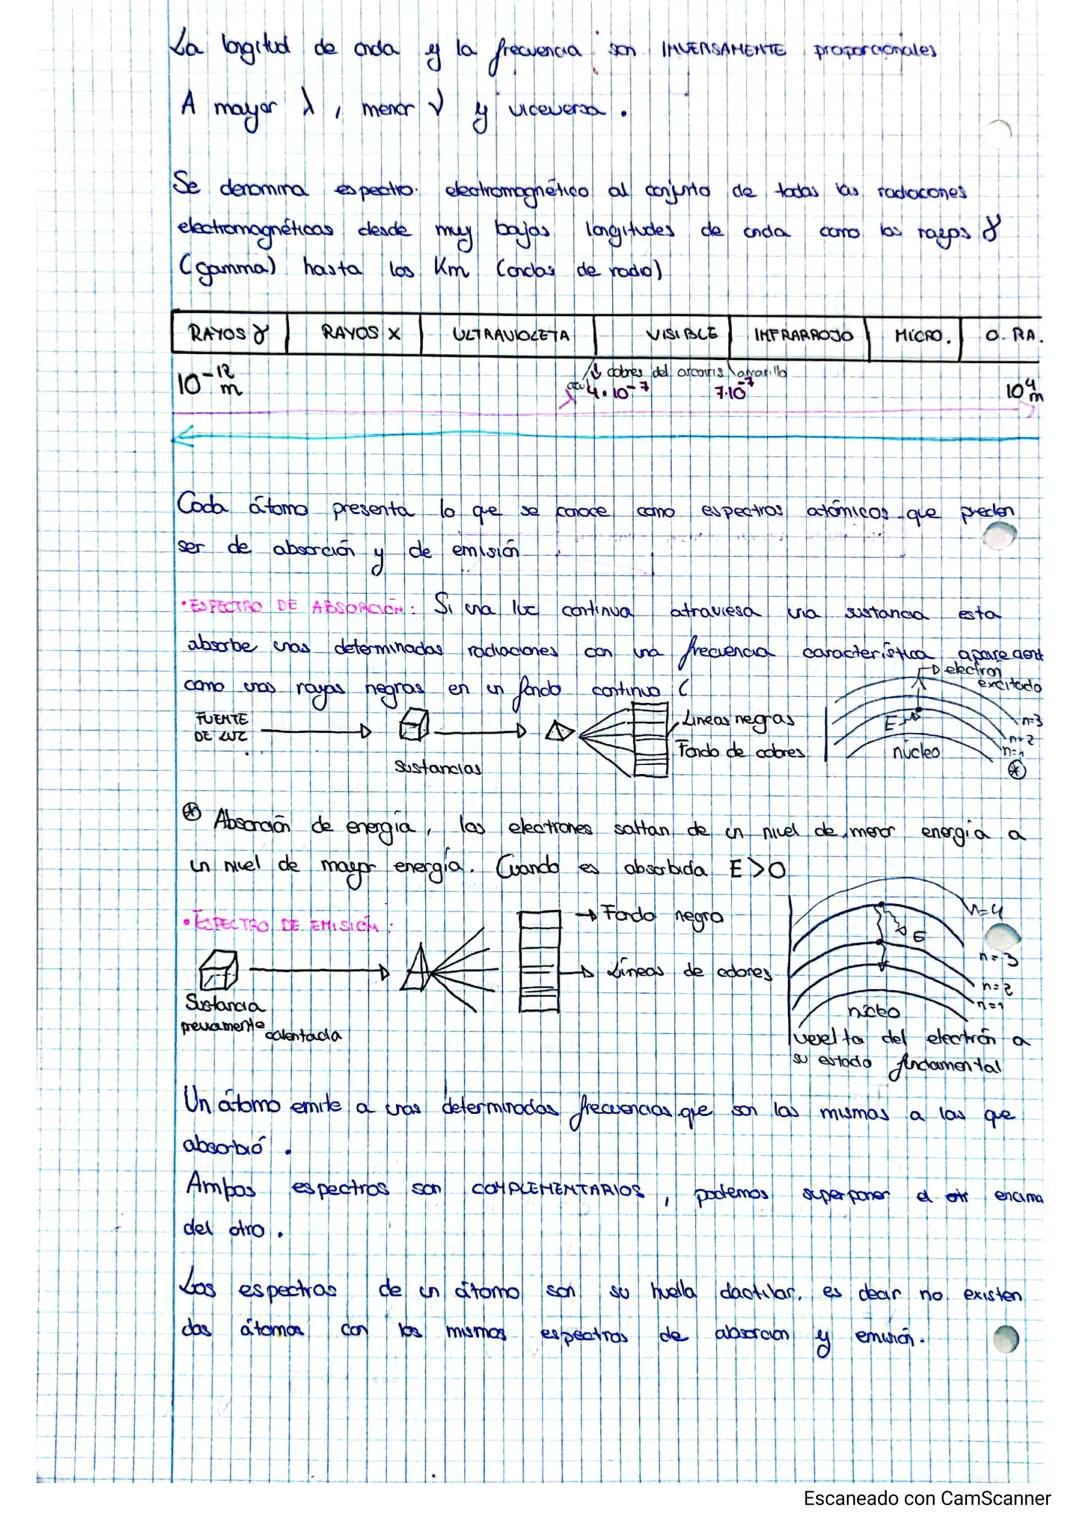 La longitud de onda y la frecuencia son INVERSAMENTE proporcionales
A mayor λ, menor ν y viceversa.
Se denomina espectro electromagnético al conjunto de todas las radiaciones
electromagnéticas desde muy bajas longitudes de onda como los rayos γ
(gamma) hasta los Km (ondas de radio)
RAYOS γ RAYOS X ULTRAVIOLETA VISIBLE INFRARROJO MICRO. O. RA.
colores del arcoiris amarillo
10⁻¹² m azul 4·10⁻⁷ 7·10⁻⁷ 10⁴ m
Cada átomo presenta lo que se conoce como espectros atómicos que pueden
ser de absorción y de emisión
•ESPECTRO DE ABSORCIÓN: Si una luz continua atraviesa una sustancia esta
absorbe unas determinadas radiaciones con una frecuencia característica aparecient
como unas rayas negras en un fondo continuo (
electron
excitado
FUENTE
DE LUZ
Sustancias
Líneas negras
Fondo de colores
E
núcleo
n=3
n=2
n=1
⊛
⊛ Absorción de energía, los electrones saltan de un nivel de menor energía a
un nivel de mayor energía. Cuando es absorbida E>0
•ESPECTRO DE EMISIÓN:
Fondo negro
Líneas de colores
Sustancia
previamente calentada
n=4
E
n=3
n=2
n=1
núcleo
vuelta del electrón a
su estado fundamental
Un átomo emite a unas determinadas frecuencias que son las mismas a las que
absorbió.
Ambos espectros son COMPLEMENTARIOS, podemos superponer el encima
del otro.
Los espectros de un átomo son su huella dactilar, es decir no existen
dos átomos con los mismos espectros de absorción y emisión.
Escaneado con CamScanner